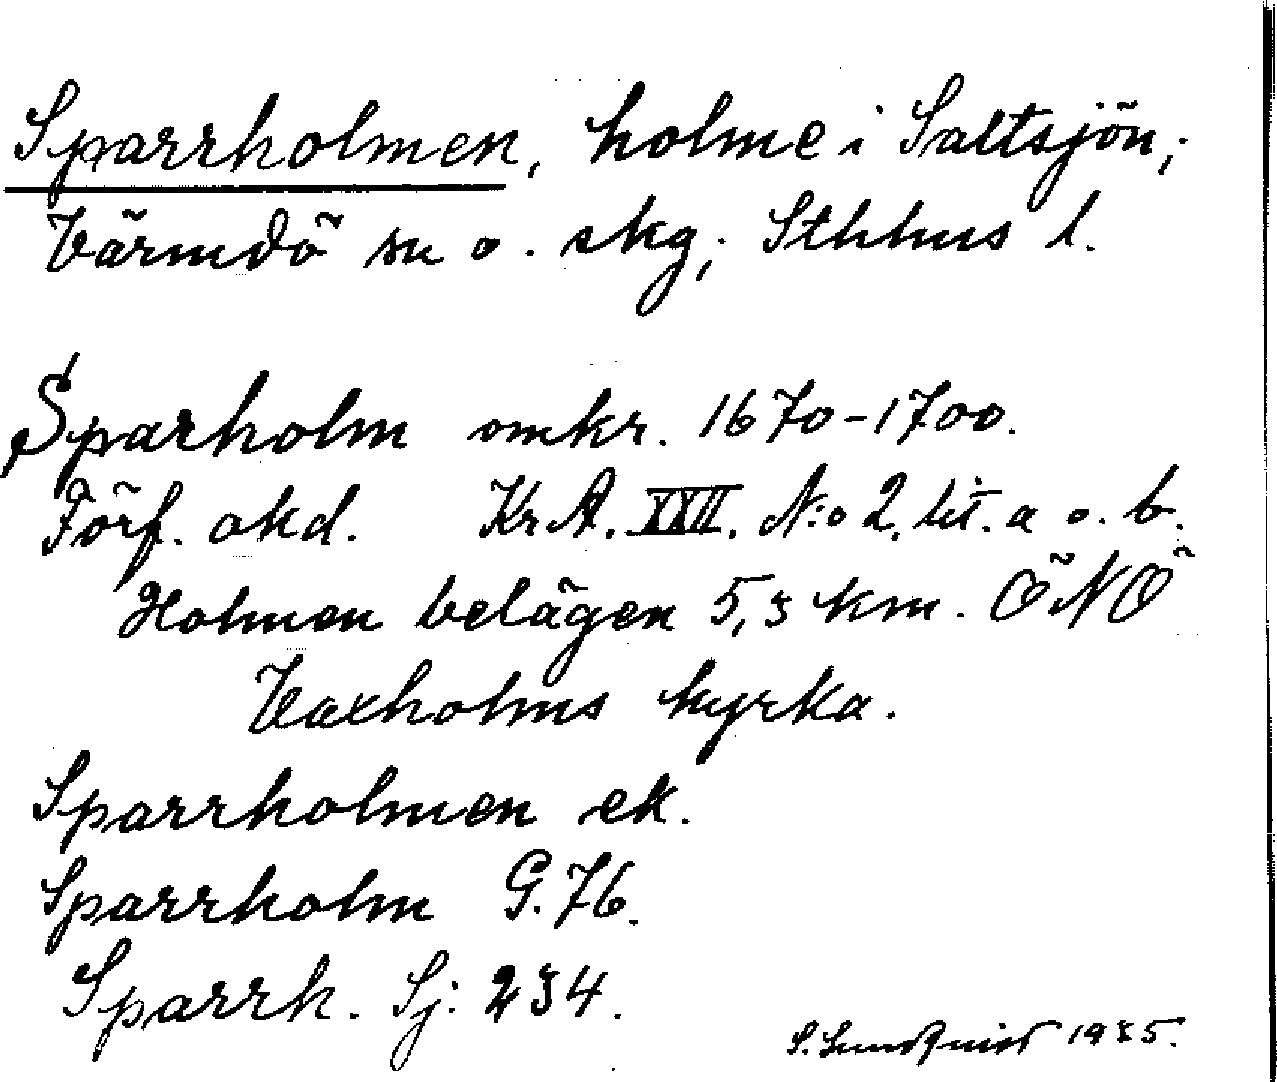 Sparrholmen, holme i Saltsjön;
Värmdö sn o. skg; Sthlms l.
Sparholm omkr. 1670-1700.
Förf. okd. KrA. XXII. N:o 2. lit. a o. b.
Holmen belägen 5,3 km. ÖNÖ
Vaxholms kyrka.
Sparrholmen ek.
Sparrholm G.76.
Sparrh. Sj: 234.
S. Lundqvist 1935.